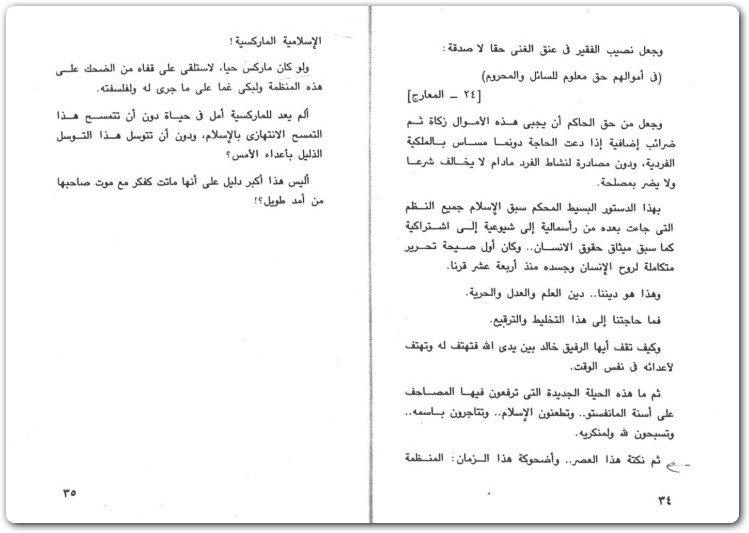 وجعل نصيب الفقير فى عنق الغنى حقا لا صدقة:
(فى أموالهم حق معلوم للسائل والمحروم)
[٢٤ ــ المعارج]
وجعل من حق الحاكم أن يجبى هذه الأموال زكاة ثم
ضرائب إضافية إذا دعت الحاجة دونما مساس بالملكية
الفردية، ودون مصادرة لنشاط الفرد مادام لا يخالف شرعا
ولا يضر بمصلحة.
بهذا الدستور البسيط المحكم سبق الإسلام جميع النظم
التى جاءت بعده من رأسمالية إلى شيوعية إلى اشتراكية
كما سبق ميثاق حقوق الانسان.. وكان أول صيحة تحرير
متكاملة لروح الإنسان وجسده منذ أربعة عشر قرنا.
وهذا هو ديننا.. دين العلم والعدل والحرية.
فما حاجتنا إلى هذا التخليط والترقيع.
وكيف تقف أيها الرفيق خالد بين يدى الله فتهتف له وتهتف
لأعدائه فى نفس الوقت.
ثم ما هذه الحيلة الجديدة التى ترفعون فيها المصاحف
على أسنة المانفستو.. وتطعنون الإسلام.. وتتاجرون باسمه..
وتسبحون لله ولمنكريه.
ثم نكتة هذا العصر.. وأضحوكة هذا الزمان: المنظمة
٣٤
الإسلامية الماركسية!
ولو كان ماركس حيا، لاستلقى على قفاه من الضحك على
هذه المنظمة ولبكى غما على ما جرى له ولفلسفته.
ألم يعد للماركسية أمل فى حياة دون أن تتمسح هذا
التمسح الانتهازى بالإسلام، ودون أن تتوسل هذا التوسل
الذليل بأعداء الأمس؟
أليس هذا أكبر دليل على أنها ماتت كفكر مع موت صاحبها
من أمد طويل؟!
٣٥